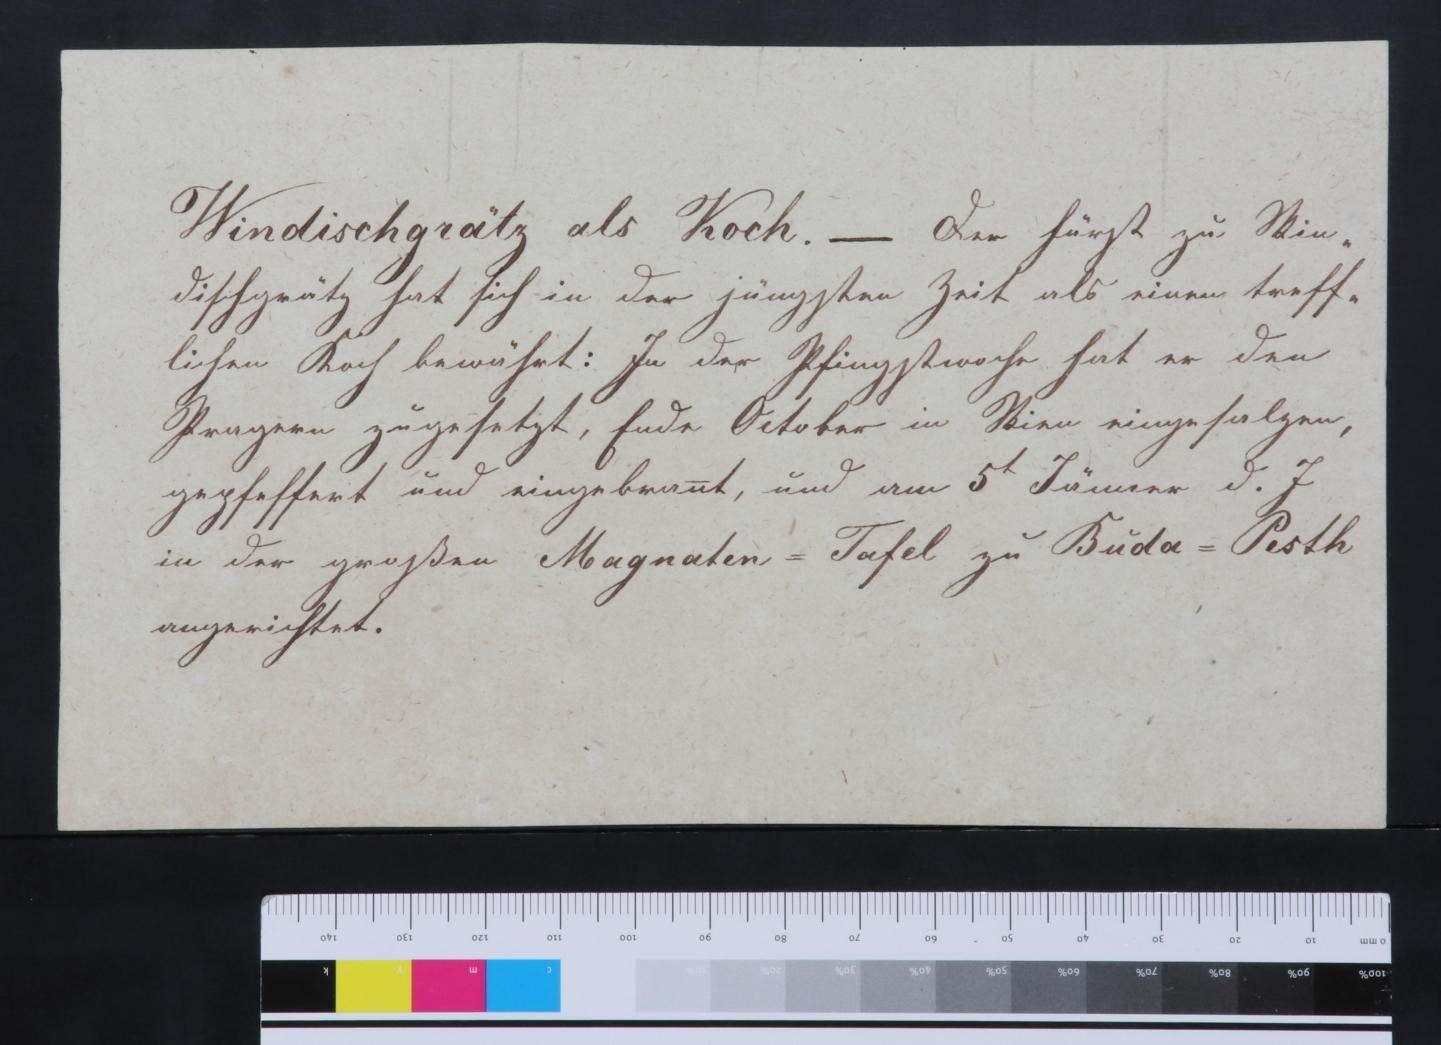 Windischgrätz als Koch. — Der Fürst zu Win-
dischgrätz hat sich in der jüngsten Zeit als einen treff-
lichen Koch bewährt: In der Pfingstwoche hat er den
Pragern zugesetzt, Ende October in Wien eingesalzen,
gepfeffert und eingebran̅t, und am 5t Jänner d. J
in der großen Magnaten = Tafel zu Buda = Pesth
angerichtet.
0 mm 10 20 30 40 50 60 70 80 90 100 110 120 130 140
k y m c 10% 20% 30% 40% 50% 60% 70% 80% 90% 100%